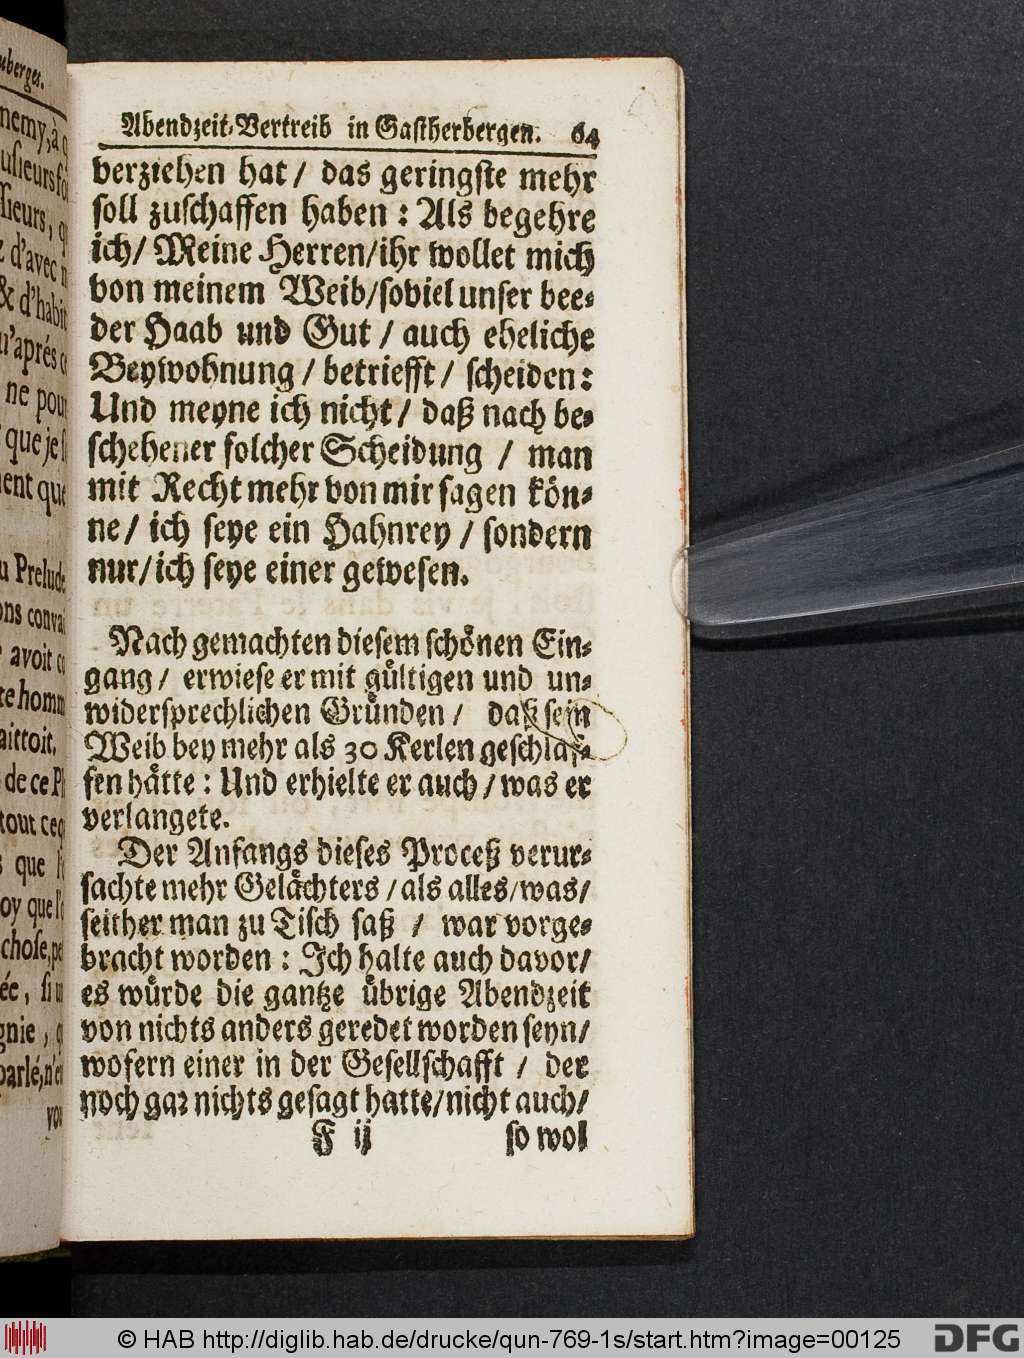 uberges.
nemy, à q
usieurs foi
sieurs, q
z d'avec n
& d'habit
u'aprés ce
ne pour
que je s
ent que
u Prelude
ons convai
avoit co
te homm
aittoit.
de ce Pl
tout ceq
s que l'e
oy que l'o
chose, pe
ée, si u
gnie, q
parlé, n'eu
vou
Abendzeit-Vertreib in Gastherbergen. 64
verziehen hat / das geringste mehr
soll zuschaffen haben : Als begehre
ich / Meine Herren / ihr wollet mich
von meinem Weib / soviel unser bee-
der Haab und Gut / auch eheliche
Beywohnung / betriefft / scheiden:
Und meyne ich nicht / daß nach be-
schehener solcher Scheidung / man
mit Recht mehr von mir sagen kön-
ne / ich seye ein Hahnrey / sondern
nur / ich seye einer gewesen.
Nach gemachten diesem schönen Ein-
gang / erwiese er mit gültigen und un-
widersprechlichen Gründen / daß sein
Weib bey mehr als 30 Kerlen geschlaf-
fen hätte : Und erhielte er auch / was er
verlangete.
Der Anfangs dieses Proceß verur-
sachte mehr Gelächters / als alles / was /
seither man zu Tisch saß / war vorge-
bracht worden : Ich halte auch davor /
es würde die gantze übrige Abendzeit
von nichts anders geredet worden seyn /
wofern einer in der Gesellschafft / der
noch gar nichts gesagt hatte / nicht auch /
F ij so wol
© HAB http://diglib.hab.de/drucke/qun-769-1s/start.htm?image=00125
DFG